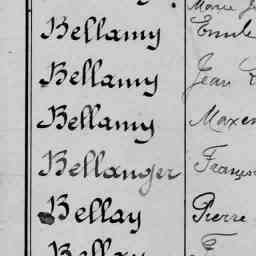 Marie
Bellamy Emile
Bellamy Jean
Bellamy Maxen
Bellanger François
Bellay Pierre
Bellay